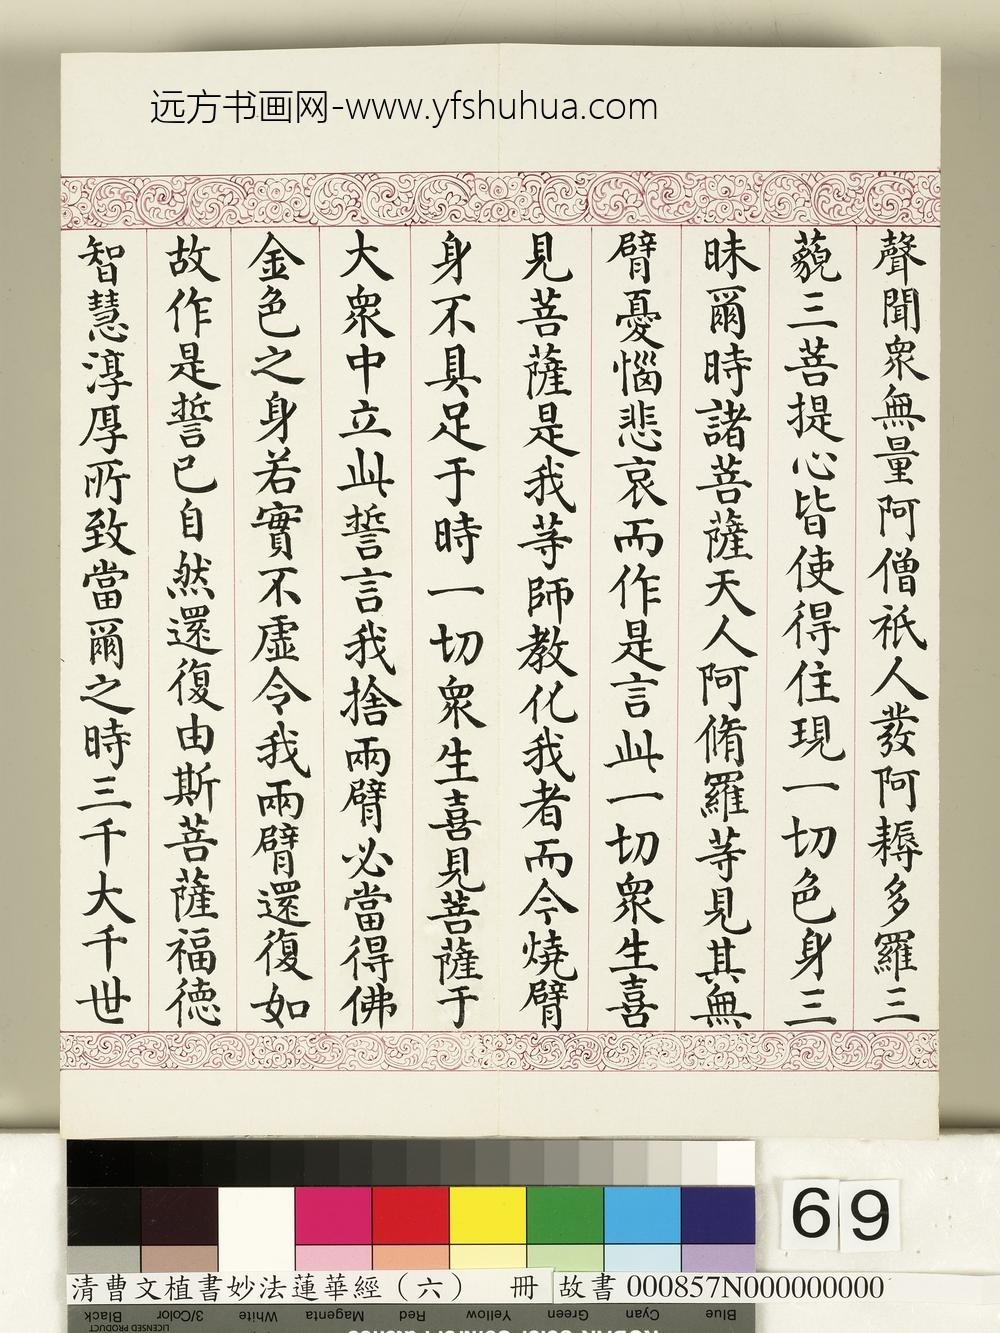 远方书画网-www.yfshuhua.com
聲聞衆無量阿僧祇人發阿耨多羅三
藐三菩提心皆使得住現一切色身三
昧爾時諸菩薩天人阿脩羅等見其無
臂憂惱悲哀而作是言此一切衆生喜
見菩薩是我等師教化我者而今燒臂
身不具足于時一切衆生喜見菩薩于
大衆中立此誓言我捨兩臂必當得佛
金色之身若實不虛令我兩臂還復如
故作是誓已自然還復由斯菩薩福德
智慧淳厚所致當爾之時三千大千世
69
清曹文植書妙法蓮華經（六） 冊
故書 000857N000000000
Black 3/Color White Magenta Red Yellow Green Cyan Blue
LICENSED PRODUCT